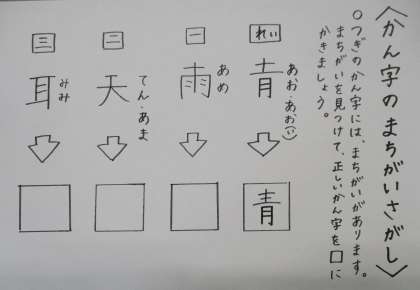 〈かん字のまちがいさがし〉
○つぎのかん字には、まちがいがあります。
まちがいを見つけて、正しいかん字を□に
かきましょう。
れい
あお・あお(い)
青
青
一
あめ
雨
二
てん・あま
天
三
みみ
耳